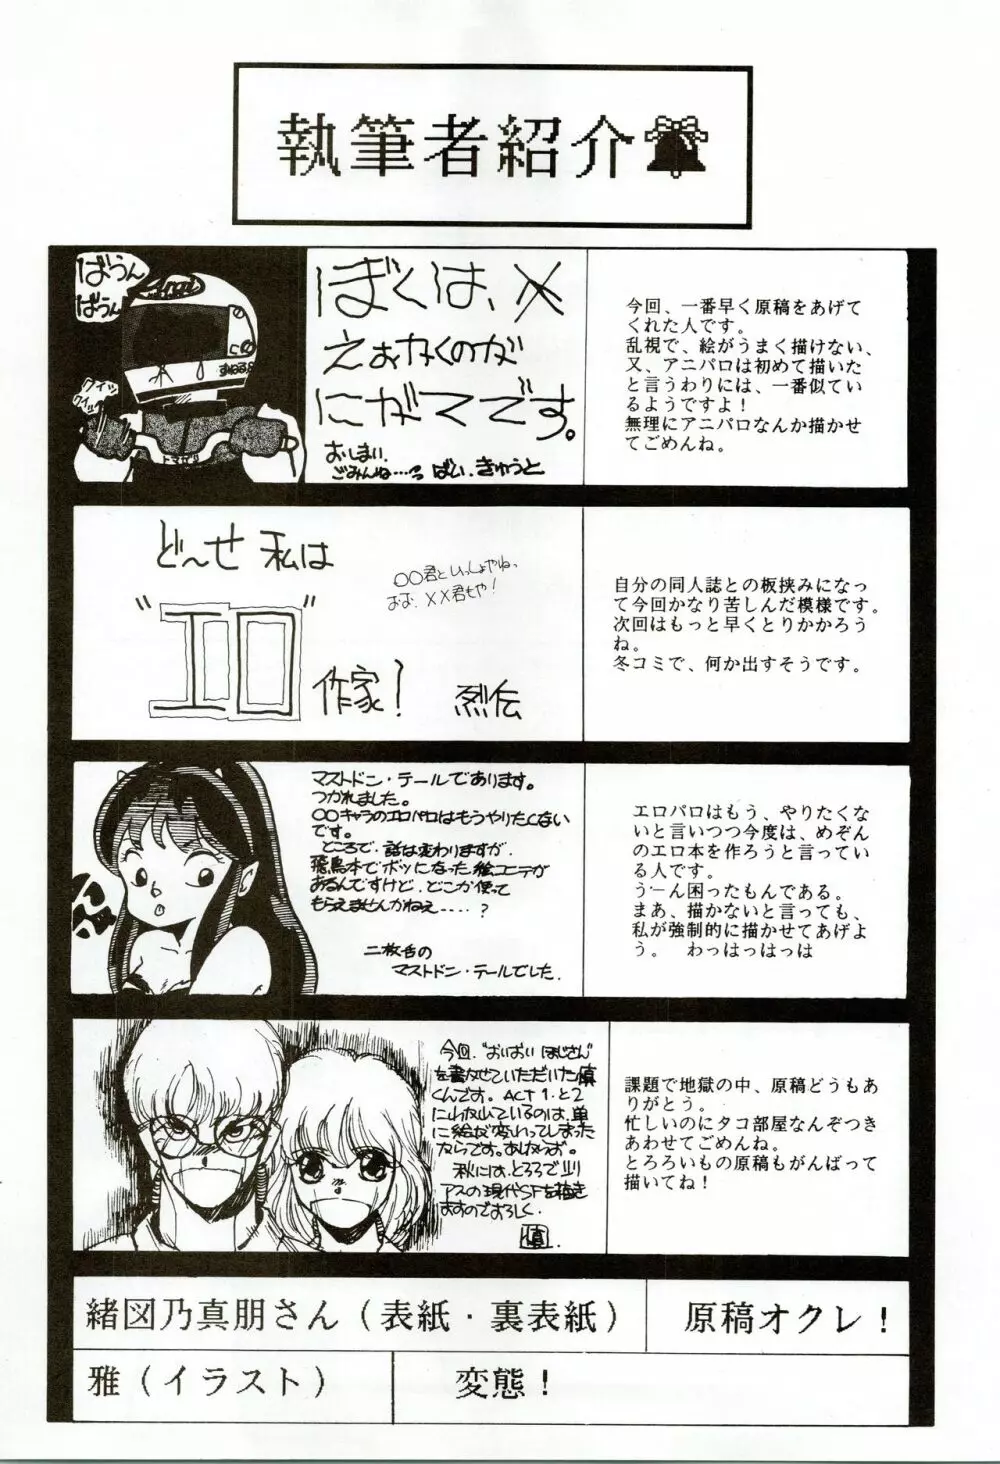 執筆者紹介
ばうん
ばうん
Arai
クイッ
クイッ
ぼくは、
えおかくのが
にがてです。
おしまい.
ごみんね……っ ばい.きゅうと
今回、一番早く原稿をあげて
くれた人です。
乱視で、絵がうまく描けない、
又、アニパロは初めて描いた
と言うわりには、一番似てい
るようですよ!
無理にアニパロなんか描かせ
てごめんね。
ど〜せ 私は
〇〇君といっしょやね、
おお、××君もや!
"エロ"
作家! 烈伝
自分の同人誌との板挟みになっ
て今回かなり苦しんだ模様です。
次回はもっと早くとりかかろう
ね。
冬コミで、何か出すそうです。
マストドン・テールであります。
つかれました。
〇〇キャラのエロパロはもうやりたくない
です。
ところで、話は変わりますが、
飛鳥本でボツになった絵コンテが
あるんですけど、どこか使って
もらえませんかねぇ....?
二枚舌の
マストドン・テールでした.
エロパロはもう、やりたくな
いと言いつつ今度は、めぞん
のエロ本を作ろうと言ってい
る人です。
うーん困ったもんである。
まあ、描かないと言っても、
私が強制的に描かせてあげよ
う。 わっはっはっは
今回、"おいおい はじさん"
を書かせていただいた慎
くんです。ACT1.と2
に
いるのは、単
に絵が変わってしまった
からです。あしからず。
秋には、とろろで
アスの現代SFを描き
ますのでよろしく.
慎.
課題で地獄の中、原稿どうもあ
りがとう。
忙しいのにタコ部屋なんぞつき
あわせてごめんね。
とろろいもの原稿もがんばって
描いてね!
緒図乃真朋さん(表紙・裏表紙)
原稿オクレ!
雅(イラスト)
変態!